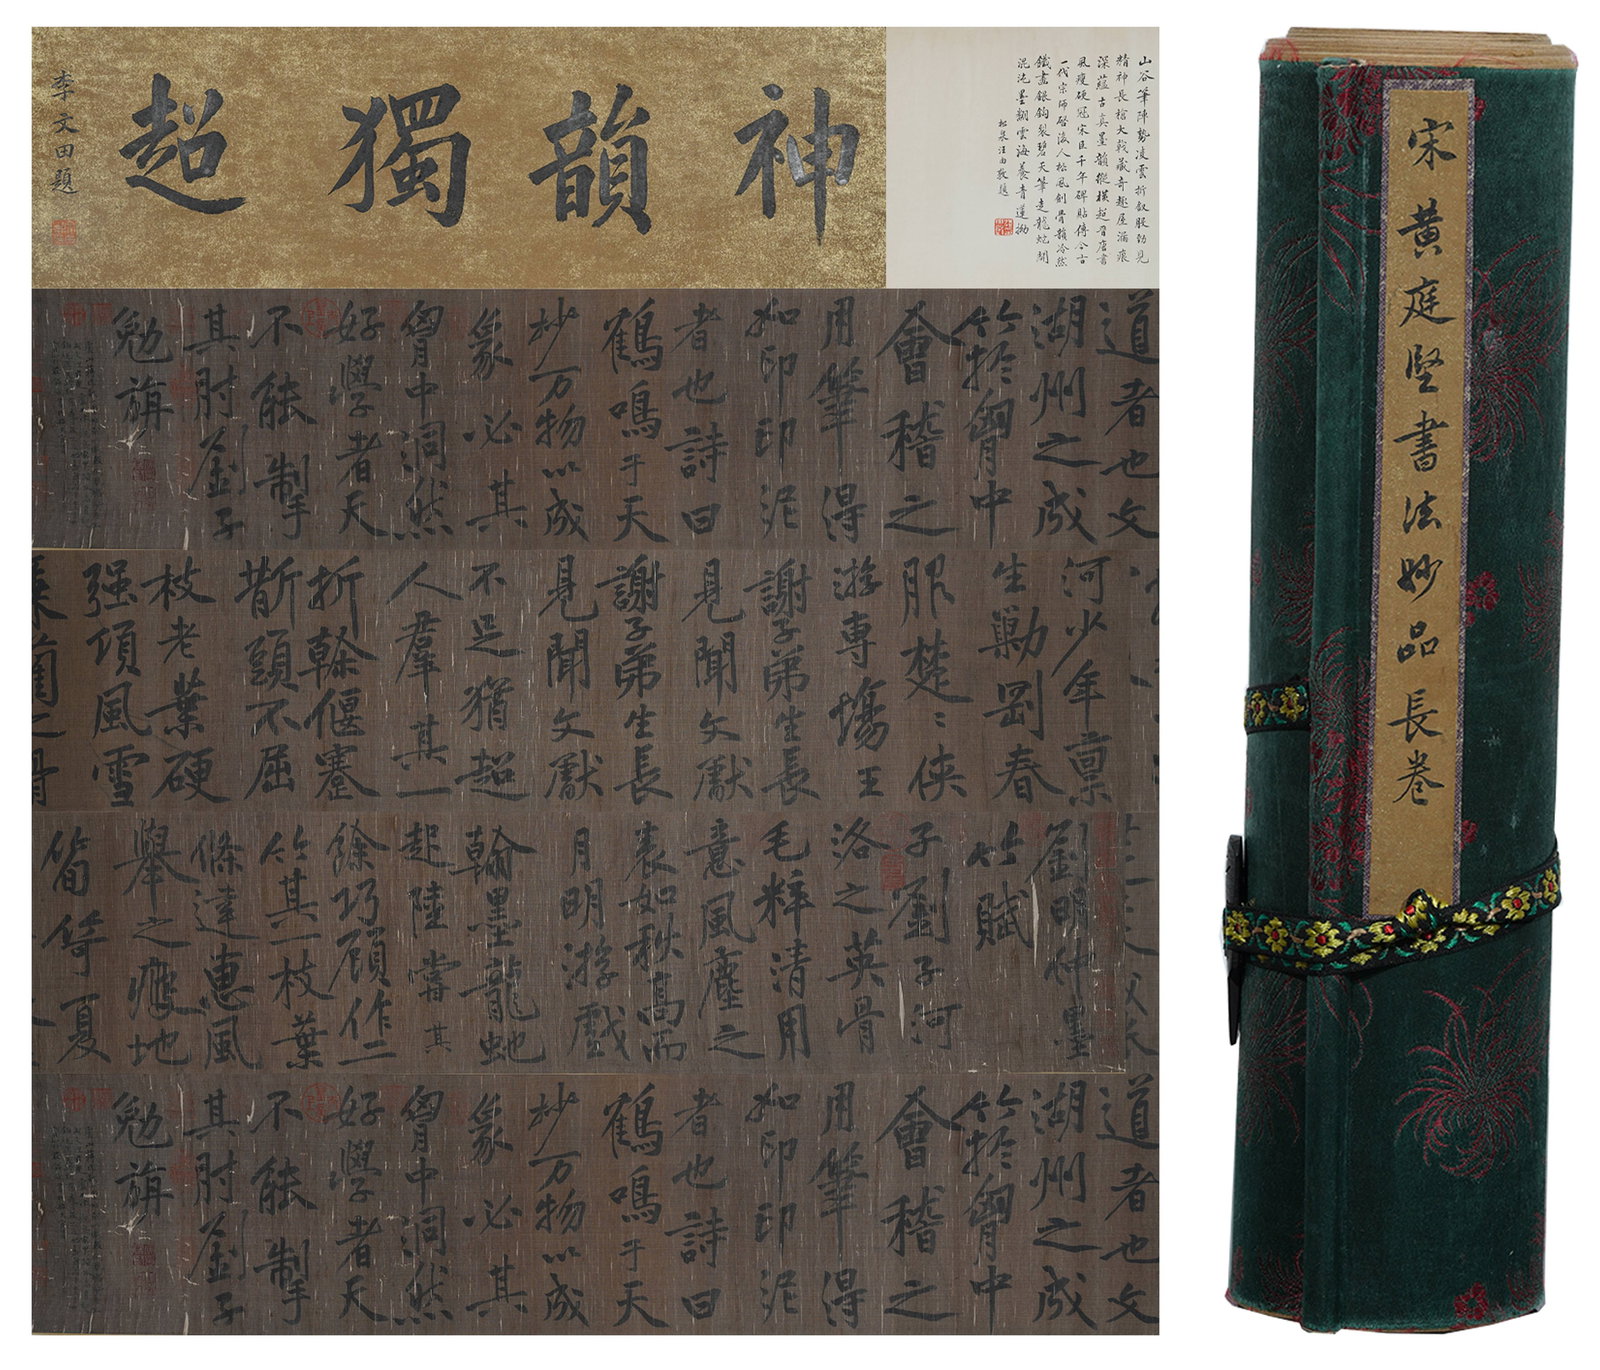 山谷筆陣勢凌雲折釵股勁見
精神長槍大戟藏奇趣屋漏痕
深蘊古真墨韻縱橫越晉唐書
風瘦硬冠宋臣千年碑貼傳今古
一代宗師啓後人松風劍骨韻冷然
鐵畫銀鉤裂碧天筆走龍蛇開
混沌墨翻雲海養青蓮拗
松泉汪由敦題
神韻獨超
李文田題
道者也文
湖州之成
竹於胷中
會稽之
用筆得
如印印泥
者也詩曰
鶴鳴于天
妙万物以成
象必其
胷中洞然
好學者天
不能制手
其肘劉子
勉旃
河少年稟
生勦剛春
服楚〻俠
游専場王
謝子弟生長
見聞文獻
謝子弟生長
見聞文獻
不足猶超
人羣其一
折榦偃蹇
斮頭不屈
枝老葉硬
强項風雪
劉明仲墨
竹賦
子劉子河
洛之英骨
毛粹清用
意風塵之
表如秋高而
月明游戲
翰墨龍蛇
起陸嘗其
餘巧顧作二
竹其一枝葉
條達惠風
舉之瘦地
筍笴夏
道者也文
湖州之成
竹於胷中
會稽之
用筆得
如印印泥
者也詩曰
鶴鳴于天
妙万物以成
象必其
胷中洞然
好學者天
不能制手
其肘劉子
勉旃
宋黄庭堅書法妙品長卷